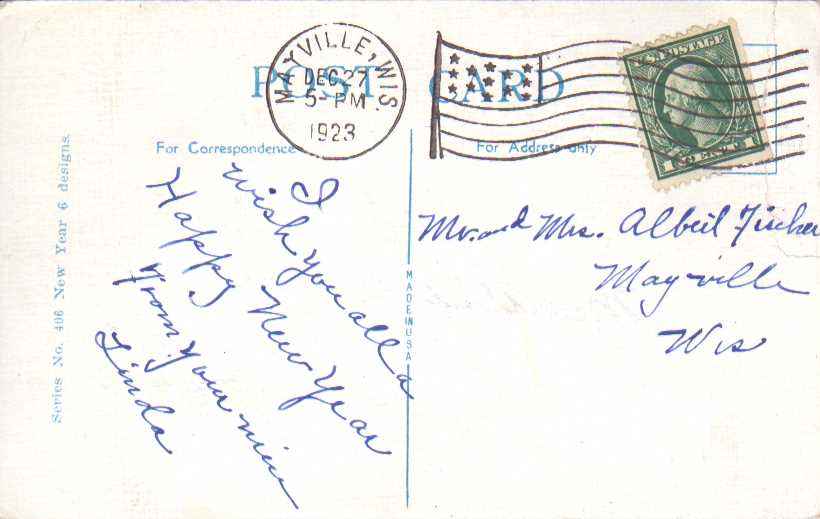 POST CARD
MAYVILLE, WIS.
DEC 27
5-PM
1923
U.S. POSTAGE
1 CENTS 1
For Correspondence
For Address only
I
wish you all a
Happy New Year
From your niece
Linda
Mr. and Mrs. Albert Fischer
Mayville
Wis
MADE IN USA
Series No. 496 New Year 6 designs.